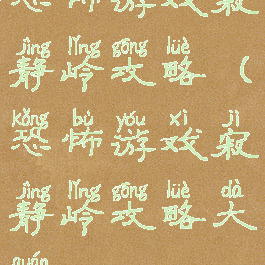 恐怖游戏寂
jìng lǐng gōng lüè
静岭攻略(
kǒng bù yóu xì jì
恐怖游戏寂
jìng lǐng gōng lüè dà
静岭攻略大
quán